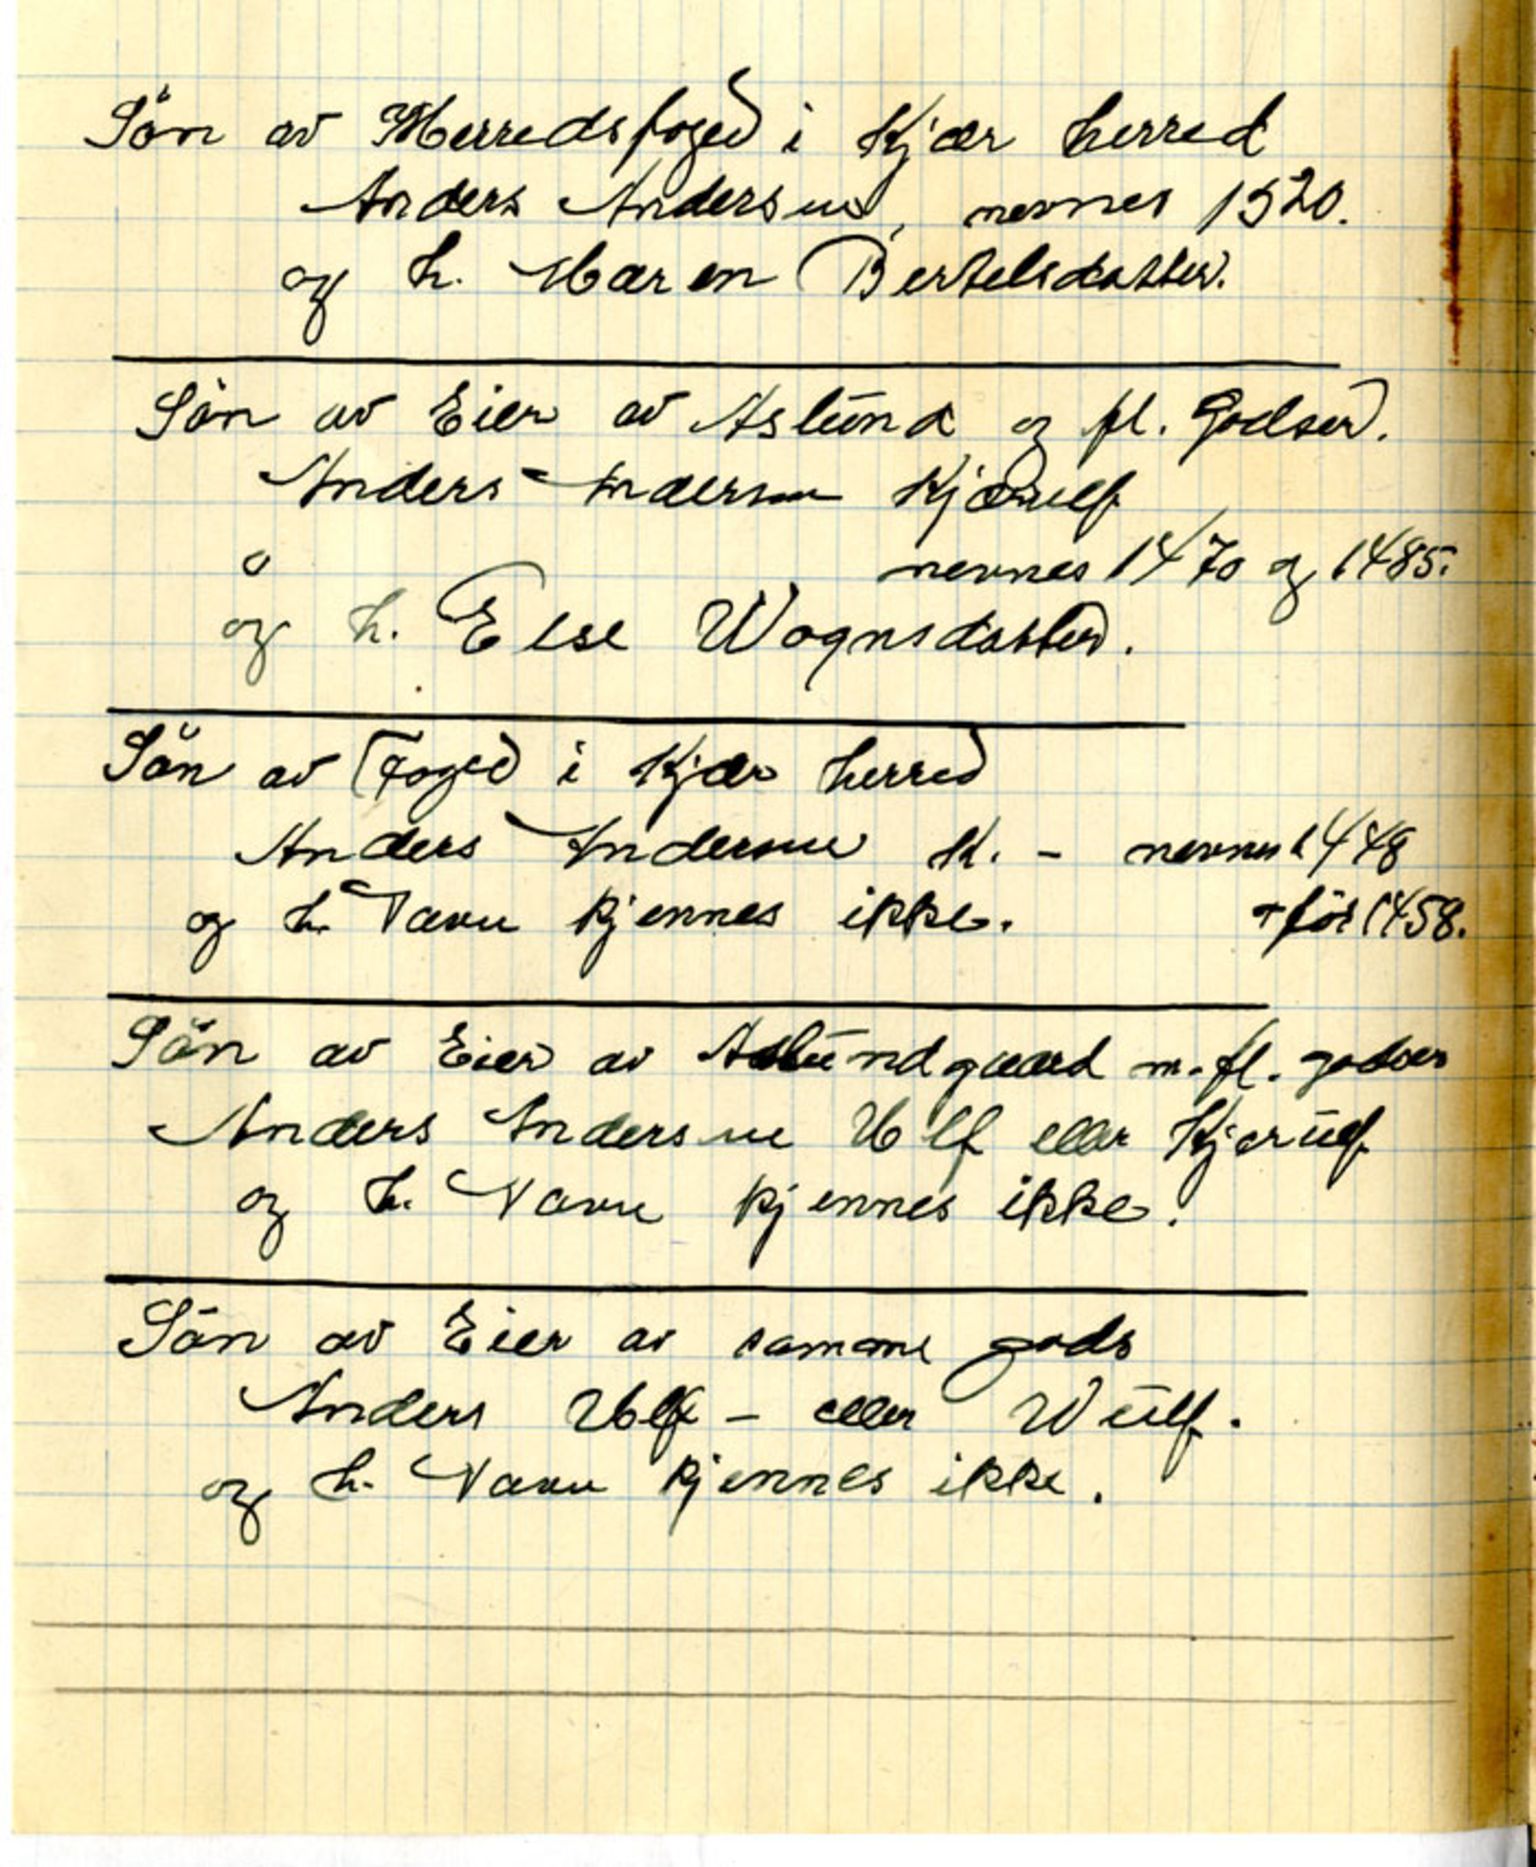 Sön av Herredsfoged i Kjær herred
Anders Andersen, nevnes 1520.
og h. Maren Bertelsdatter.
Sön av Eier av Aslund og fl. Godser.
Anders Andersen Kjærulf
nevnes 1470 og 1485.
og h. Else Wognsdatter.
Sön av Foged i Kjær herred
Anders Andersen K. - nevnes 1448
og h. Navn kjennes ikke. + för 1458.
Sön av Eier av Aslundgaard m. fl. godser
Anders Andersen Ulf eller Kjærulf
og h. Navn kjennes ikke.
Sön av Eier av samme gods
Anders Ulf - eller Wulf.
og h. Navn kjennes ikke.